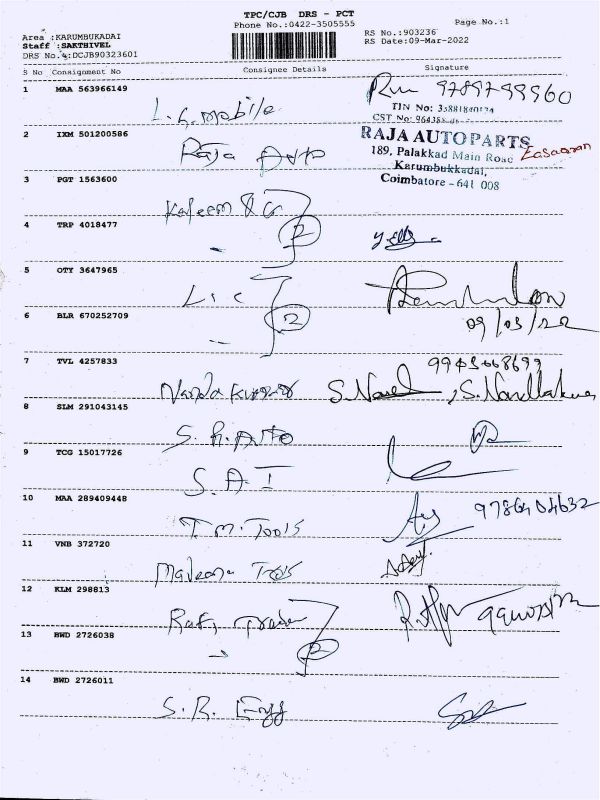 TPC/CJB DRS - PCT
Phone No.:0422-3505555
Page No.:1
Area :KARUMBUKADAI
Staff :SAKTHIVEL
DRS No.:DCJB90323601
RS No.:903236
RS Date:09-Mar-2022
S No Consignment No Consignee Details Signature
1 MAA 563966149
L.G. mobile
9789799960
TIN No:
CST No:
2 IXM 501200586
Raja Auto
RAJA AUTO PARTS
189, Palakkad Main Road
Karumbukkadai,
Coimbatore - 641 008
3 PGT 1563600
Kaleem & Co
4 TRP 4018477
2
5 OTY 3647965
L.I.C
6 BLR 670252709
2
09/03/22
7 TVL 4257833
Nanda Kumar
8 SLM 291043145
S.R. Auto
9 TCG 15017726
S.A.I
10 MAA 289409448
T.M. Tools
9786404632
11 VNB 372720
Maleena Tools
12 KLM 298813
Rafi Trader
13 BWD 2726038
2
14 BWD 2726011
S.R. Engg